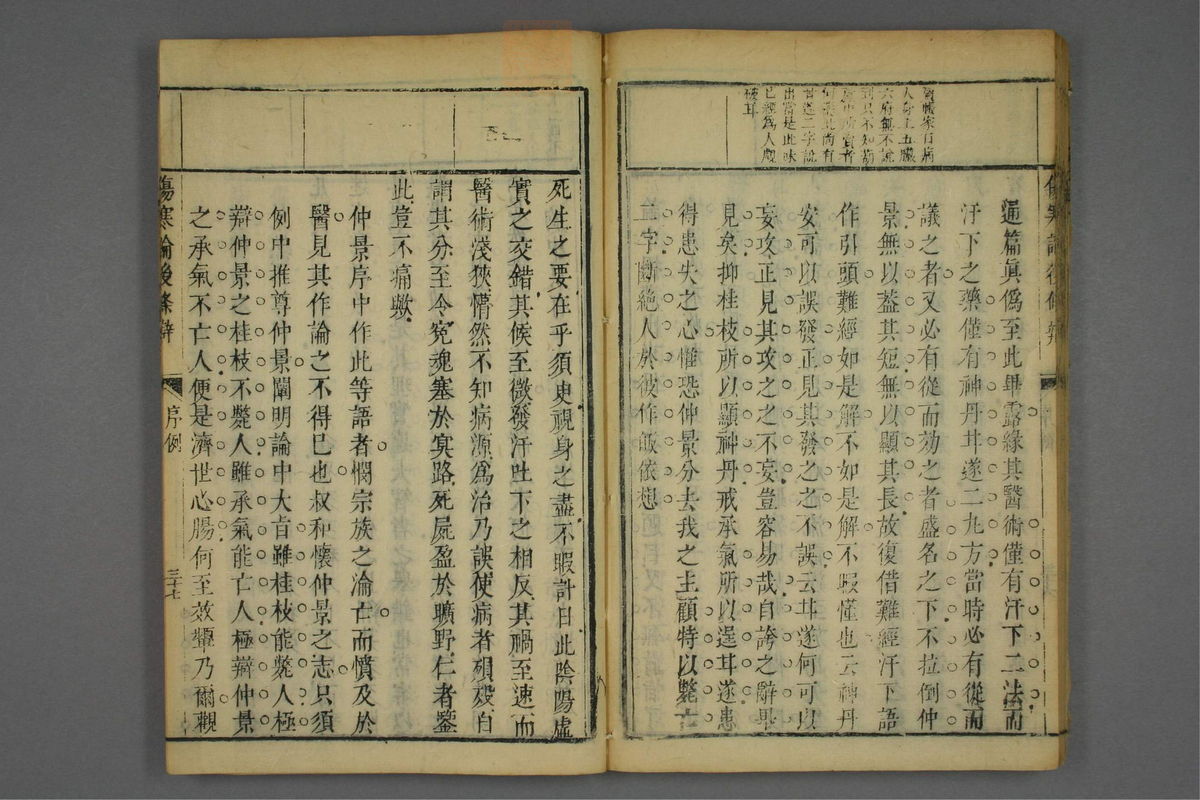 人身上五臟
六府無不說
到只不知葫
出當是此味
已經爲人覷
破耳
通篇眞僞至此畢露緣其醫術僅有汗下二法而
汗下之藥僅有神丹甘遂二丸方當時必有從而
議之者又必有從而効之者盛名之下不拉倒仲
景無以蓋其短無以顯其長故復借難經汗下語
作引頭難經如是解不如是解不暇懂也云神丹
安可以誤發正見其發之之不誤云甘遂何可以
妄攻正見其攻之之不妄豈容易哉自誇之辭畢
見矣抑桂枝所以顯神丹戒承氣所以逞甘遂患
得患失之心惟恐仲景分去我之主顧特以斃亡
二字斷絶人於彼作皈依想
死生之要在乎須臾視身之盡不暇計日此陰陽虛
實之交錯其候至微發汗吐下之相反其禍至速而
醫術淺狹懵然不知病源爲治乃誤使病者殞歿自
謂其分至令寃魂塞於㝠路死屍盈於曠野仁者鑒
此豈不痛歟
仲景序中作此等語者憫宗族之淪亡而憤及於
醫見其作論之不得已也叔和懷仲景之志只須
例中推尊仲景闡明論中大旨雖桂枝能斃人極
辯仲景之桂枝不斃人雖承氣能亡人極辯仲景
之承氣不亡人便是濟世心腸何至效顰乃爾觀
傷寒論後條辯
序例
三十七